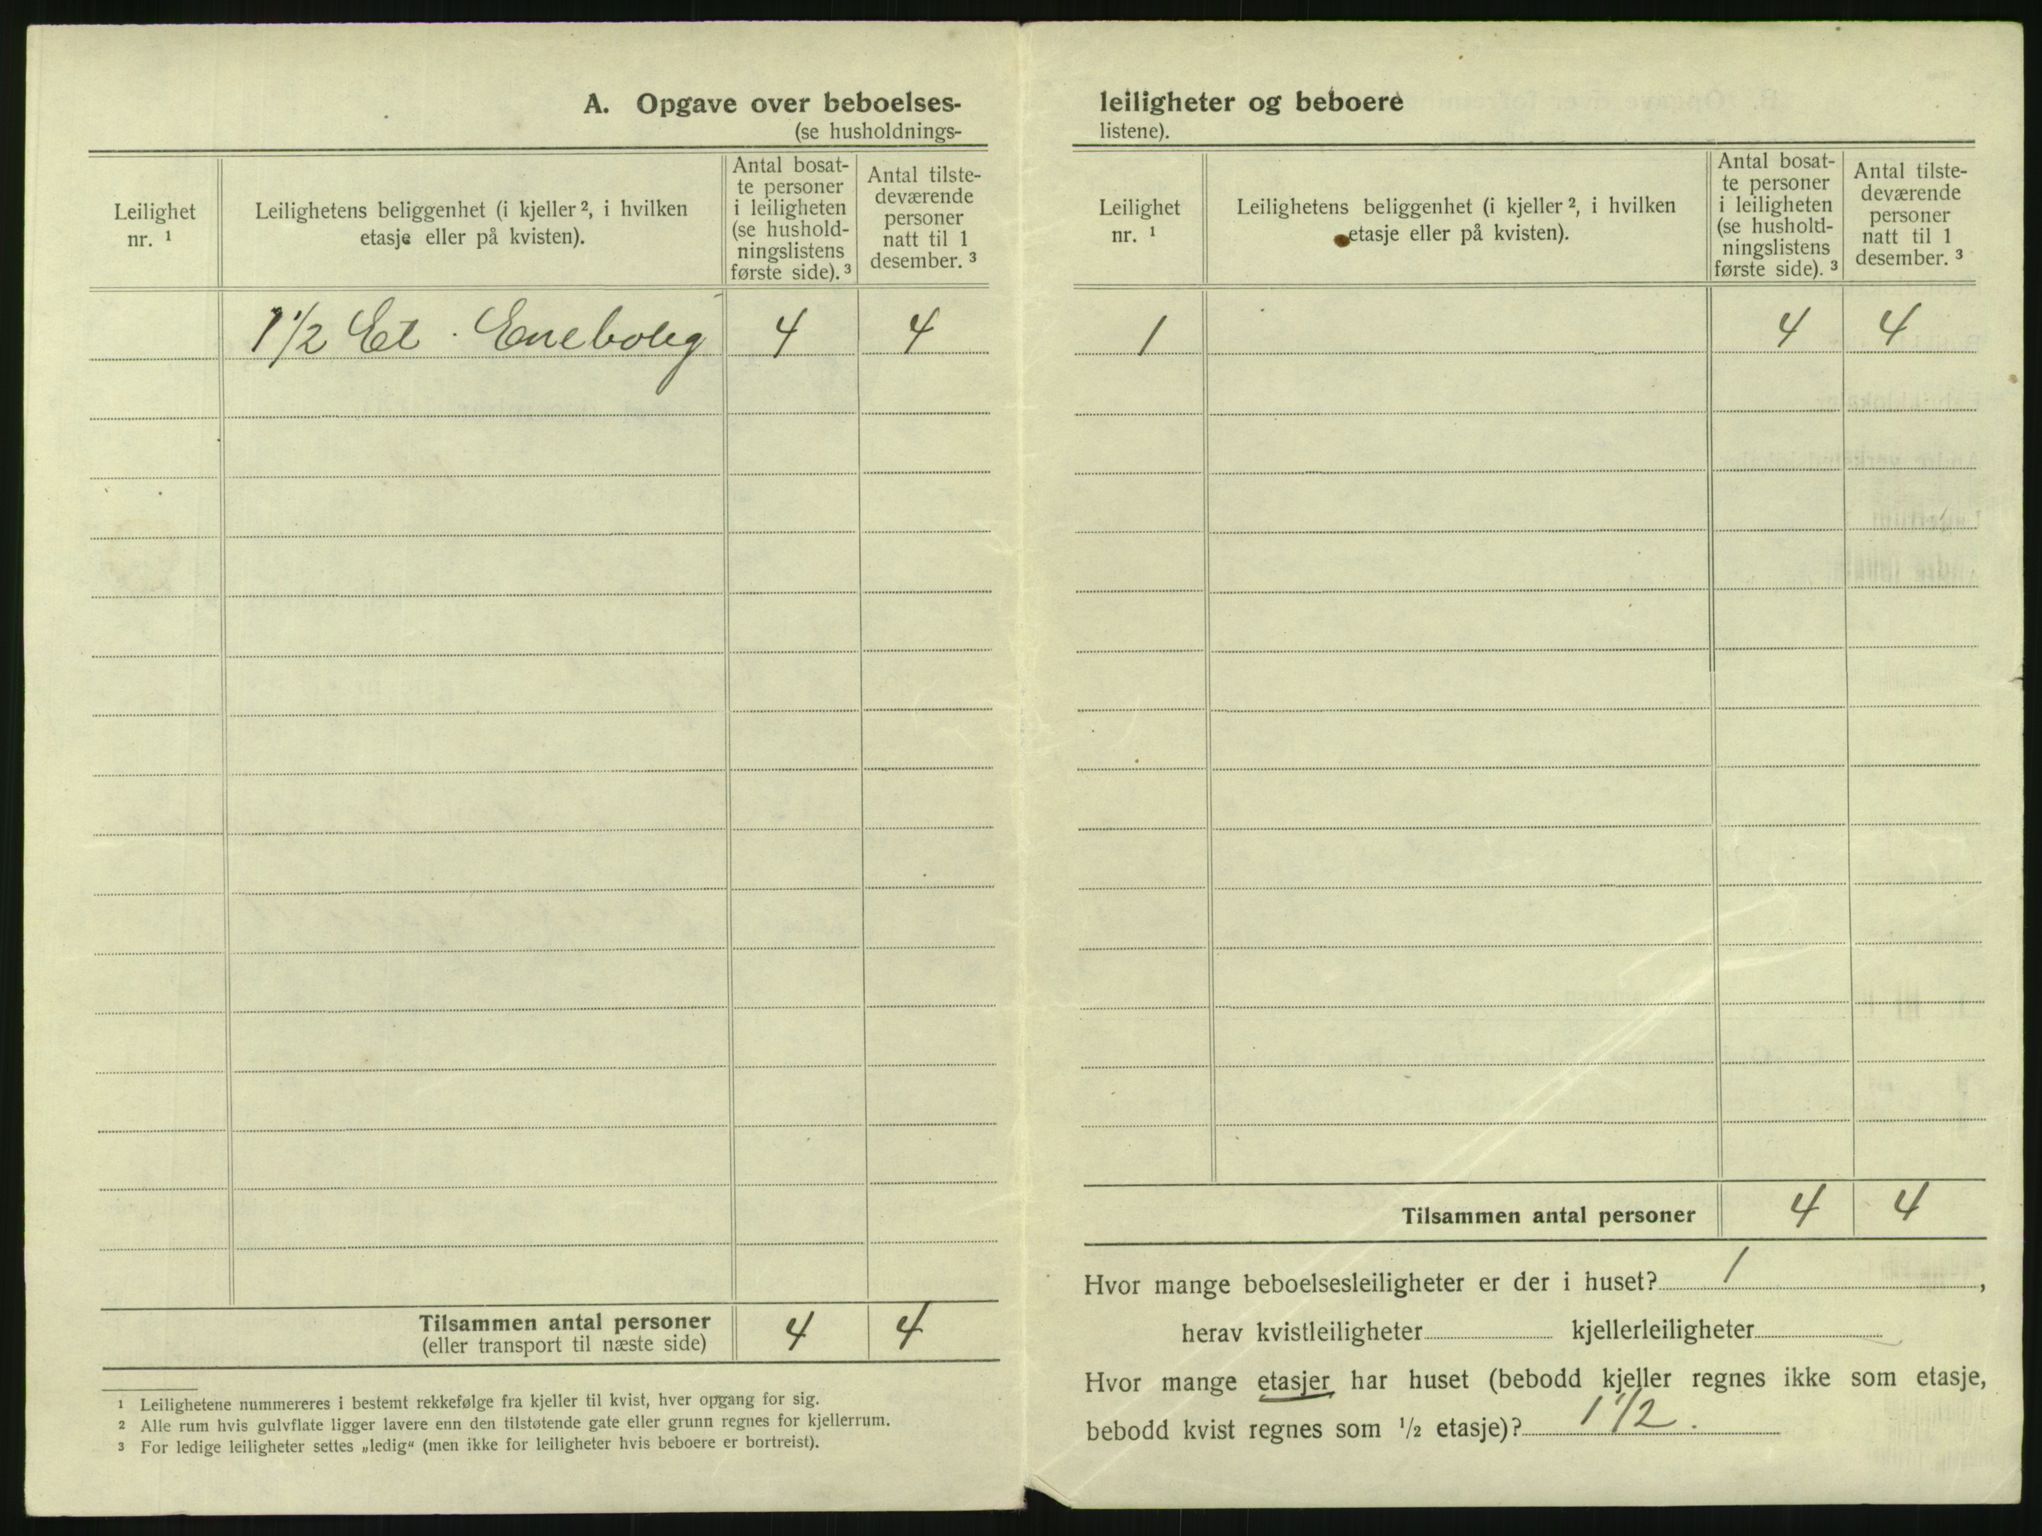 A. Opgave over beboelses-
(se husholdnings-
Leilighet
nr. ¹
Leilighetens beliggenhet (i kjeller ², i hvilken
etasje eller på kvisten).
Antal bosat-
te personer
i leiligheten
(se hushold-
ningslistens
første side). ³
Antal tilste-
deværende
personer
natt til 1
desember. ³
1 1/2 Et. Enebolig 4 4
Tilsammen antal personer 4 4
(eller transport til næste side)
¹ Leilighetene nummereres i bestemt rekkefølge fra kjeller til kvist, hver opgang for sig.
² Alle rum hvis gulvflate ligger lavere enn den tilstøtende gate eller grunn regnes for kjellerrum.
³ For ledige leiligheter settes „ledig“ (men ikke for leiligheter hvis beboere er bortreist).
leiligheter og beboere
listene).
Leilighet
nr. ¹
Leilighetens beliggenhet (i kjeller ², i hvilken
etasje eller på kvisten).
Antal bosat-
te personer
i leiligheten
(se hushold-
ningslistens
første side). ³
Antal tilste-
deværende
personer
natt til 1
desember. ³
1 4 4
Tilsammen antal personer 4 4
Hvor mange beboelsesleiligheter er der i huset? 1,
herav kvistleiligheter kjellerleiligheter
Hvor mange etasjer har huset (bebodd kjeller regnes ikke som etasje,
bebodd kvist regnes som 1/2 etasje)? 1 1/2.